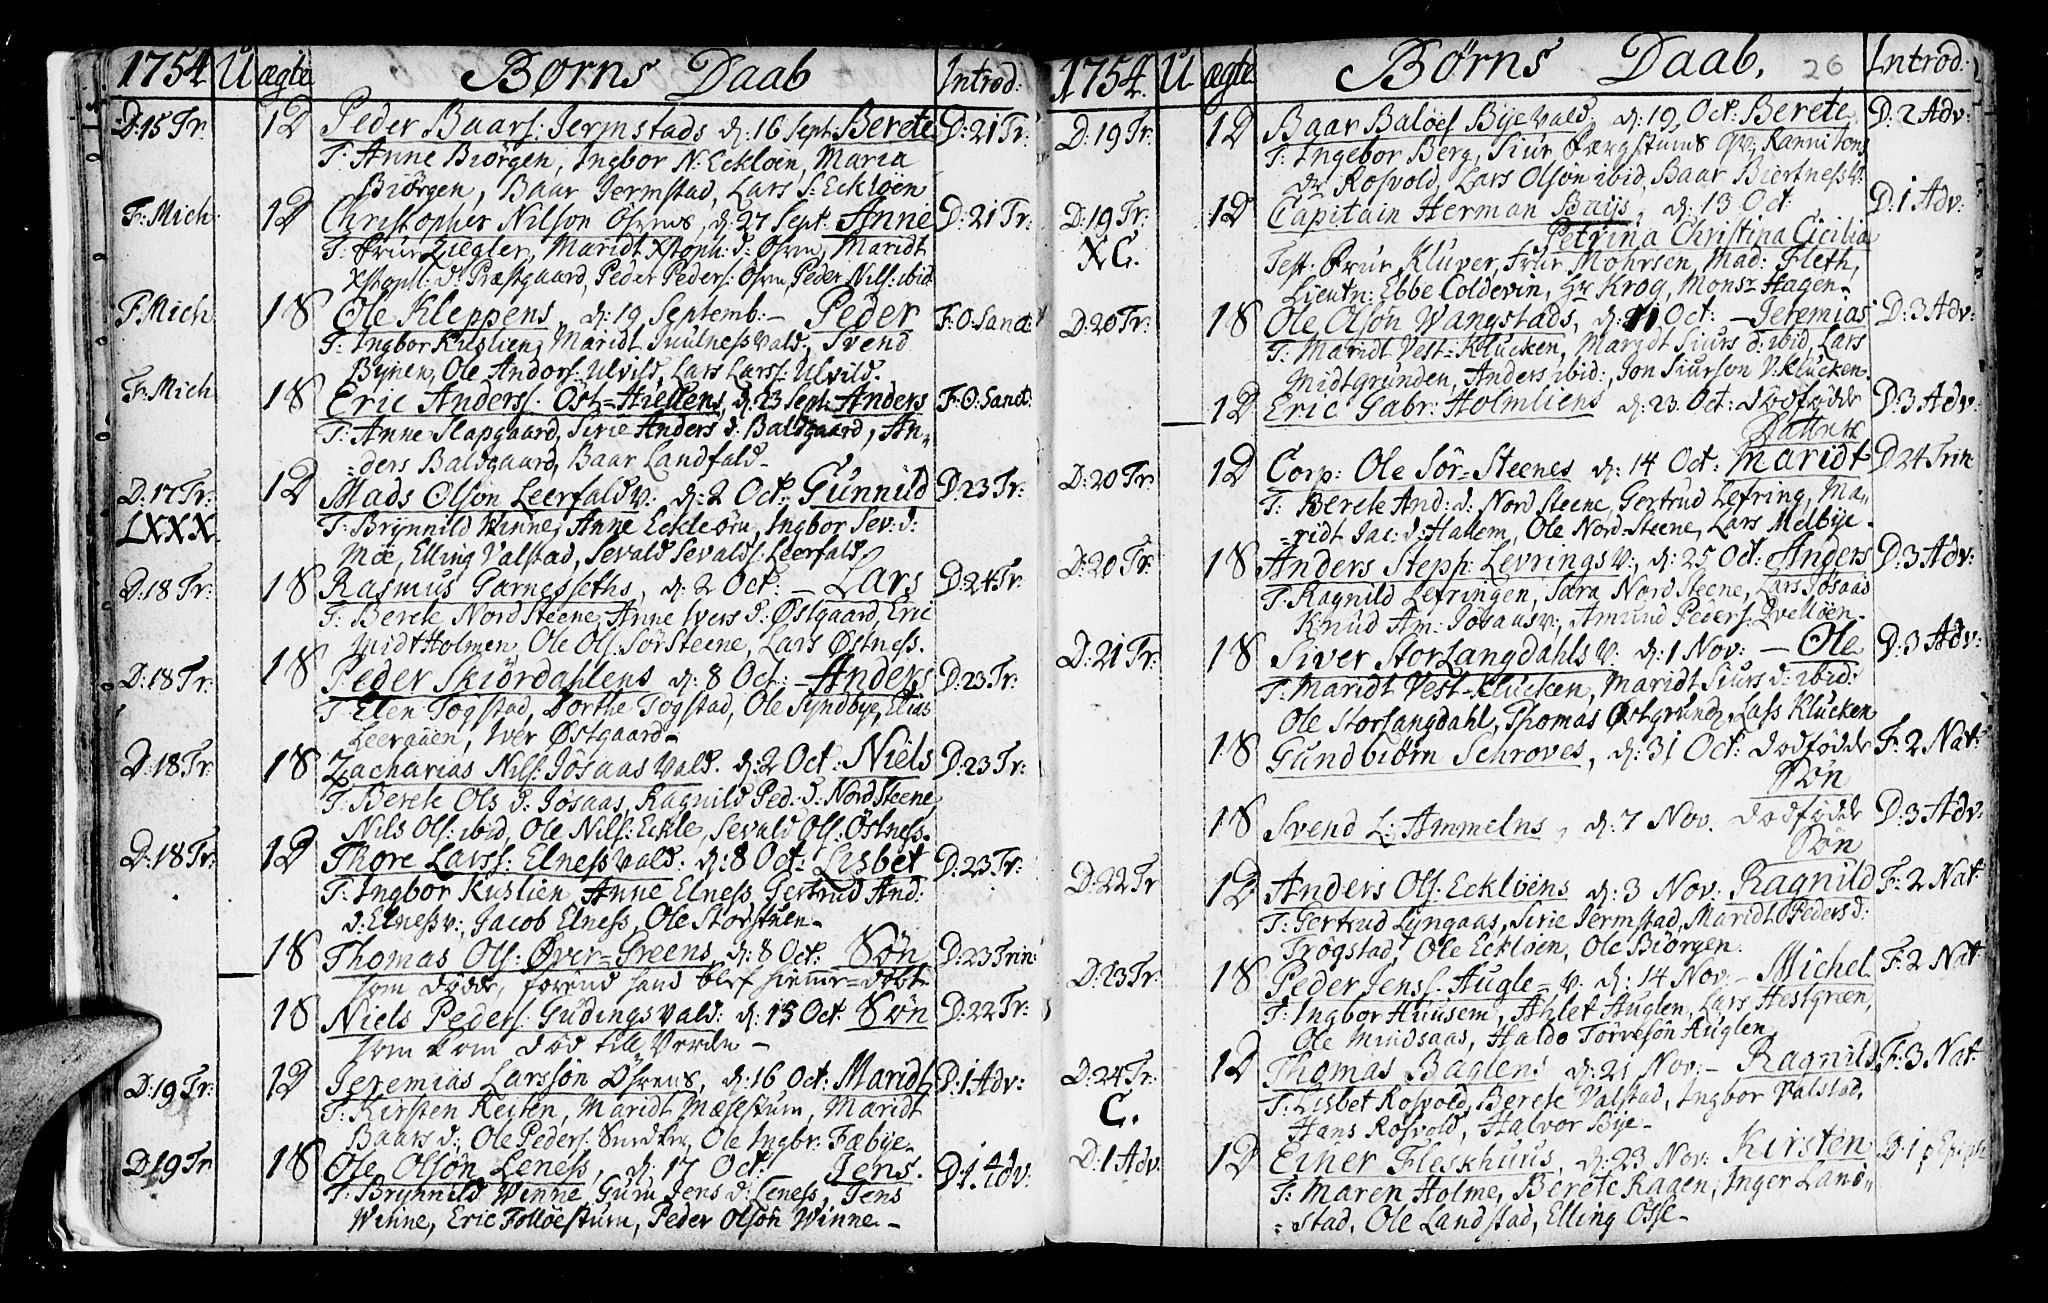 1754. U ægte Børns Daab Introd:
D: 15 Tr. 1D Peder Baars: Jermstads d: 16 Sept. Berete D: 21 Tr:
T: Anne Biörgen, Ingbor N: Eckloen, Maria
Biörgen, Baar Jermstad, Lars S: Ecklöen
F: Mich 1D Christopher Nilson Öfrens, d: 27 Sept. Anne D: 21 Tr:
T: Frur Ziegler, Maridt Xstoph: d: Öfren, Maridt
Xstoph: d: Præstgaard, Peder Peders: Öfren, Peder Nils: ibid
F: Mich 1S Ole Kleppens, d: 19 Septemb: – Peder F: O: Sanct:
T: Ingbor Kuslien, Maridt Juulness Vald, Svend
Bynen, Ole Anders: Ulvild, Lars Larss: Ulvild.
F: Mich 1S Eric Anderss. Öst=Hieltens, d: 23 Sept. Anders F: O: Sanct:
T: Anne Slapgaard, Sirie Anders d: Baldgaard, An=
=ders Baldgaard, Baar Landfald –
D: 17 Tr. 1D Mads Olson Leerfald v. d: 2 Oct. Gunnild D: 23 Tr:
LXXX. T: Brynnild Winne, Anne Eckleörn, Ingbor Sev: d:
Moe, Elling Valstad, Sevald Sevalds: Leerfald
D: 18 Tr. 1S Rasmus Garnesseths, d: 2 Oct: – Lars D: 24 Tr:
T: Berete Nord Steene, Anne Ivers d: Östgaard, Eric
Midt Holmen, Ole Ols: Sör Steene, Lars Östness.
D: 18 Tr: 1S Peder Skiördahlens d: 8 Oct: – Anders D: 23 Tr:
T: Elen Togstad, Dorthe Togstad, Ole Syndbye, Elias
Leerauen, Iver Östgaard –
D: 18 Tr: 1S Zacharias Nils: Jösaas Vald. d: 2 Oct: Niels D: 23 Tr:
T: Berete Ols d: Jösaas, Ragnild Ped: d: Nord Steene,
Nils Ols: ibid, Ole Nils: Eckle, Sevald Ols: Östness.
D: 18 Tr: 1D Thore Larss: Elness Vald. d: 8 Oct: Lisbet D: 23 Tr:
T: Ingbor Kuslien, Anne Elness, Gertrud And:
d: Elness v:, Jacob Elness, Ole Storstuen –
1S Thomas Ols: Över=Greens, d: 8 Oct: Sön D: 23 Trin:
som döde, förend hand blef hiemme=döbt
1S Niels Peders: Gudings Vald: d: 15 Oct Sön D: 22 Tr:
som kom död till Verden –
D: 19 Tr: 1D Jeremias Larssön Öfrens, d: 16 Oct: Maridt D: 1 Adv:
T: Kirsten Reiten, Maridt Mæsestum, Maridt
Baars d:, Ole Peders: Ole Ingbr: Fæbye –
D: 19 Tr 1S Ole Olsön Leness, d: 17 Oct. – Jens. D: 1. Adv:
T: Brynnild Winne, Guru Jens d: Leness, Jens
Winne, Eric Follöestum, Peder Olsön Winne –
1754. U ægte Børns Daab. 26 Introd:
D: 19 Tr: 1D Baar Balöes Bye Vald, d: 19 Oct: Berete D: 2 Adv:
T: Ingebor Berg, Siur Færgstums Qv:, Ranni Tons
dr Rosvold, Lars Olsön ibid, Baar Biertness v:
D: 19 Tr: 1D Capitain Herman Buys, d: 13 Oct D: 1 Adv:
XC. Petrina Christina Cicilia
Test: Frur, Kluver, Frur Mohrsen, Mad: Fleth,
Lieutn: Ebbe Coldevin, Hr Krog, Monsr Hagen –
D: 20 Tr: 1S Ole Olsön Wangstads, d: 11 Oct: – Jeremias D: 3 Adv:
T: Maridt Vest=Klucken, Maridt Siurs d: ibid, Lars
Midtgrunden, Anders ibid:, Jon Siurson V: Klucken.
1D Eric Gabr: Holmliens d: 23. Oct: dödfödde D: 3 Adv:
Datter
D: 20 Tr: 1D Corp: Ole Sör=Steenes d: 14 Oct: Maridt D: 24 Trin
T: Berete And: d: Nord Steene, Gertrud Lefring, Ma=
=ridt Jac: d: Hallem, Ole Nord Steene, Lars Melbye.
D: 20 Tr: 1S Anders Steph: Levrings V:, d: 25 Oct: Anders D: 3 Adv:
T: Ragnild Lefringen, Sara Nord Steene, Lars Jösaas
Knud Am: Jösaas v:, Amund Peders: Qvellöen –
D: 21 Tr: 1S Siver StorLangdahls V. d: 1 Nov: – Ole D: 3 Adv:
T: Maridt Vest=Klucken, Maridt Siurs d: ibid:
Ole StorLangdahl, Thomas Östgrund, Lars Klucken
1S Gundbiörn Schroves, d: 31 Oct: dödfödde F: 2 Nat:
Sön
1S Svend L: Ammelns, d: 7 Nov. dödfödde D: 3 Adv:
Sön
D: 22 Tr 1D Anders Ols: Ecklöens d: 3 Nov: Ragnild F: 2 Nat
T: Gertrud Lyngaas, Sirie Jermstad, Maridt Peders d:
Trögstad, Ole Eckloen, Ole Biörgen.
D: 23 Tr: 1S Peder Jens: Augle= v. d: 14 Nov – Michel F: 2 Nat
T: Ingbor Huusem, Ahlet Auglen, Lars Hestgreen,
Ole Mindsaas, Haldo Torvesön Auglen,
D: 24 Tr: 1D Thomas Baglens d: 21 Nov: – Ragnild F: 3 Nat
C. T: Lisbet Rosvold, Berete Valstad, Ingbor Valstad,
Hans Rosvold, Halvor Bye –
D: 1 Adv: 1D Einer Fleskhuus, d: 23 Nov: Kirsten D: 1 p Epiph
T: Maren Holme, Berete Ragen, Inger Land=
=stad, Ole Landstad, Elling Osse –